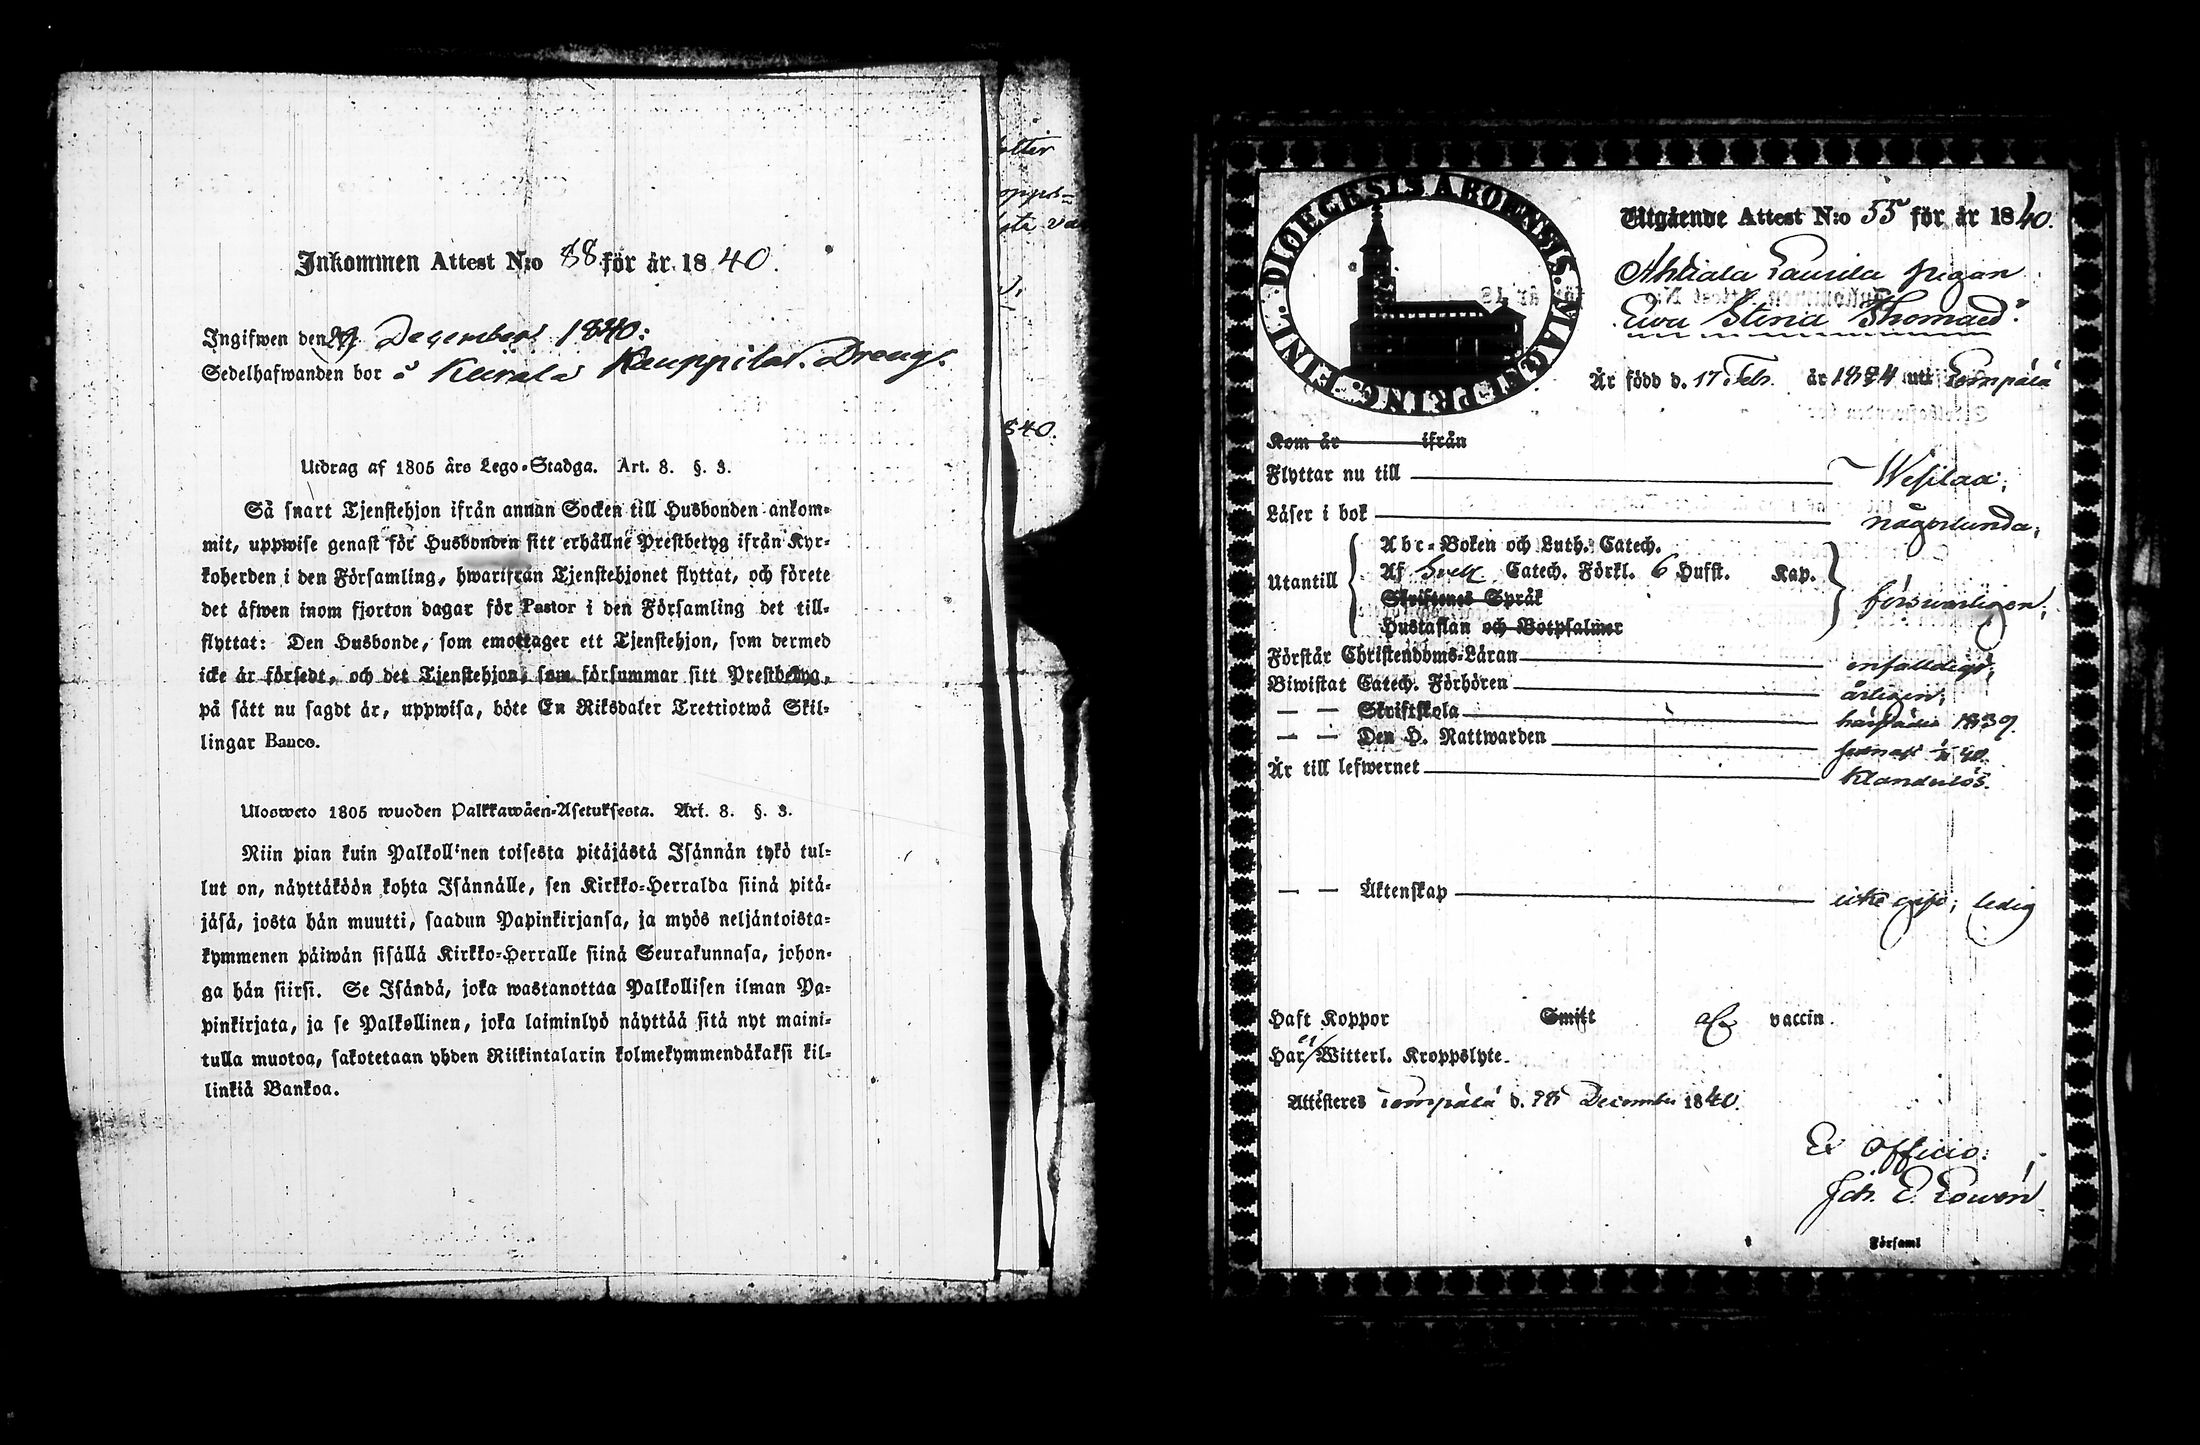 Inkommen Attest N:o 88 för år 1840.
Ingifwen den 29 December 1840:
Sedelhafwanden bor å Keirala Kauppilas Dreng.
Utdrag af 1805 års Lego-Stadga. Art. 8. §. 3.
Så snart Tjenstehjon ifrån annan Socken till Husbonden ankom-
mit, uppwise genast för Husbonden sitt erhållne Prestbetyg ifrån Kyr-
koherden i den Församling, hwarifrån Tjenstehjonet flyttat, och förete
det äfwen inom fjorton dagar för Pastor i den Församling det till-
flyttat: Den Husbonde, som emottager ett Tjenstehjon, som dermed
icke är försedt, och det Tjenstehjon, som försummar sitt Prestbetyg,
på sätt nu sagdt är, uppwisa, böte En Riksdaler Trettiotwå Skil-
lingar Banco.
Uloswcto 1805 wuoden Palkkawäen-Asetuksesta. Art. 8. §. 3.
Niin pian kuin Palkollinen toisesta pitäjästä Isännän tykö tul-
lut on, näyttäköön kohta Isännälle, sen Kirkko-Herralda siinä pitä-
jäsä, josta hän muutti, saadun Papinkirjansa, ja myös neljäntoista-
kymmenen päiwän sisällä Kirkko-Herralle siinä Seurakunnasa, johon-
ga hän siirsi. Se Isändä, joka wastanottaa Palkollisen ilman Pa-
pinkirjata, ja se Palkollinen, joka laiminlyö näyttää sitä nyt maini-
tulla muotoa, sakotetaan yhden Riikintalarin kolmekymmendäkaksi kil-
linkiä Bankoa.
840.
DIOECESIS ABOENSIS. MAGN. PRING. FINL.
Utgående Attest N:o 55 för år 1840.
Ahtiala Laurila pigan
Ewa Stina Thomasd:r
Är född d. 17 Feb. år 1824 uti Lempälä
Kom år ifrån
Flyttar nu till Wesilax;
Läser i bok någorlunda;
Abc-Boken och Luth. Catech.
Utantill Af Sveb. Catech. Förkl. 6 Hufst. Kap.
Skriftenes Språk försvarligen;
Hustaflan och Botpsalmer
Förstår Christendoms-Läran enfaldigt;
Biwistat Catech. Förhören årligen;
— — Skriftskola härstädes 1839
— — Den H. Nattwarden
Är till lefwernet klanderlös.
— — Äktenskap icke gift; ledig
Haft Koppor Smitt af vaccin.
Har ej Witterl. Kroppslyte.
Attesteres Lempälä d. 28 December 1840.
Ex officio:
Joh. E. Lowén
Församl